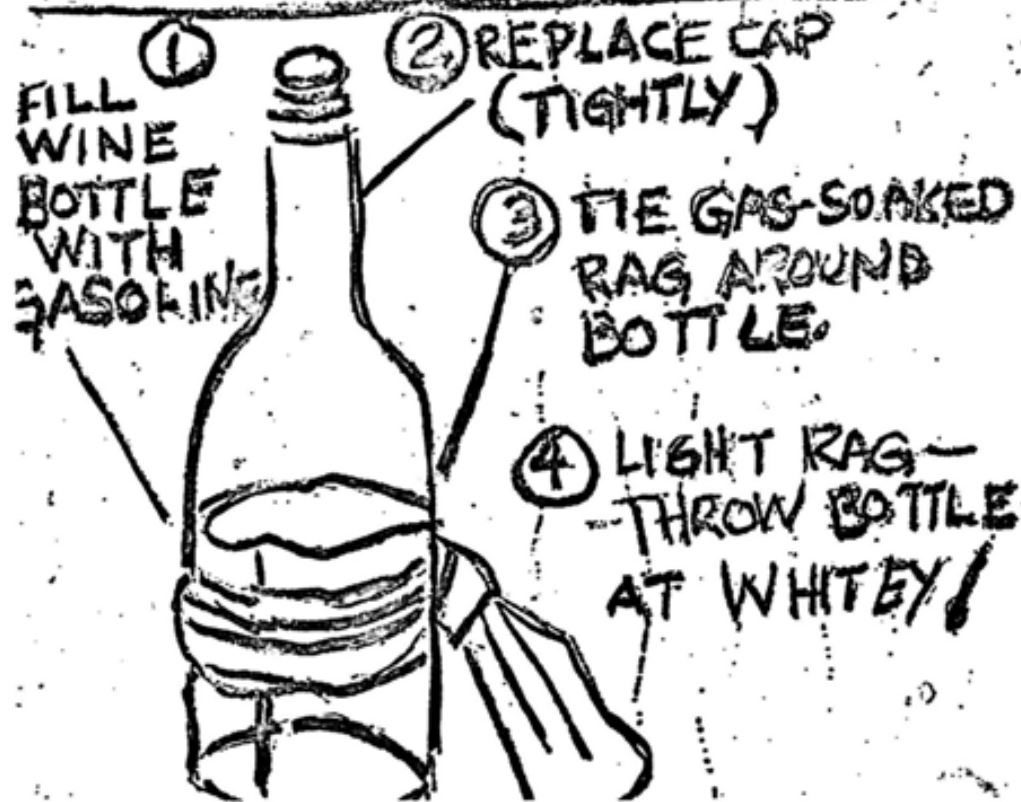 ①
FILL
WINE
BOTTLE
WITH
GASOLINE
② REPLACE CAP
(TIGHTLY)
③ TIE GAS-SOAKED
RAG AROUND
BOTTLE.
④ LIGHT RAG—
THROW BOTTLE
AT WHITEY!